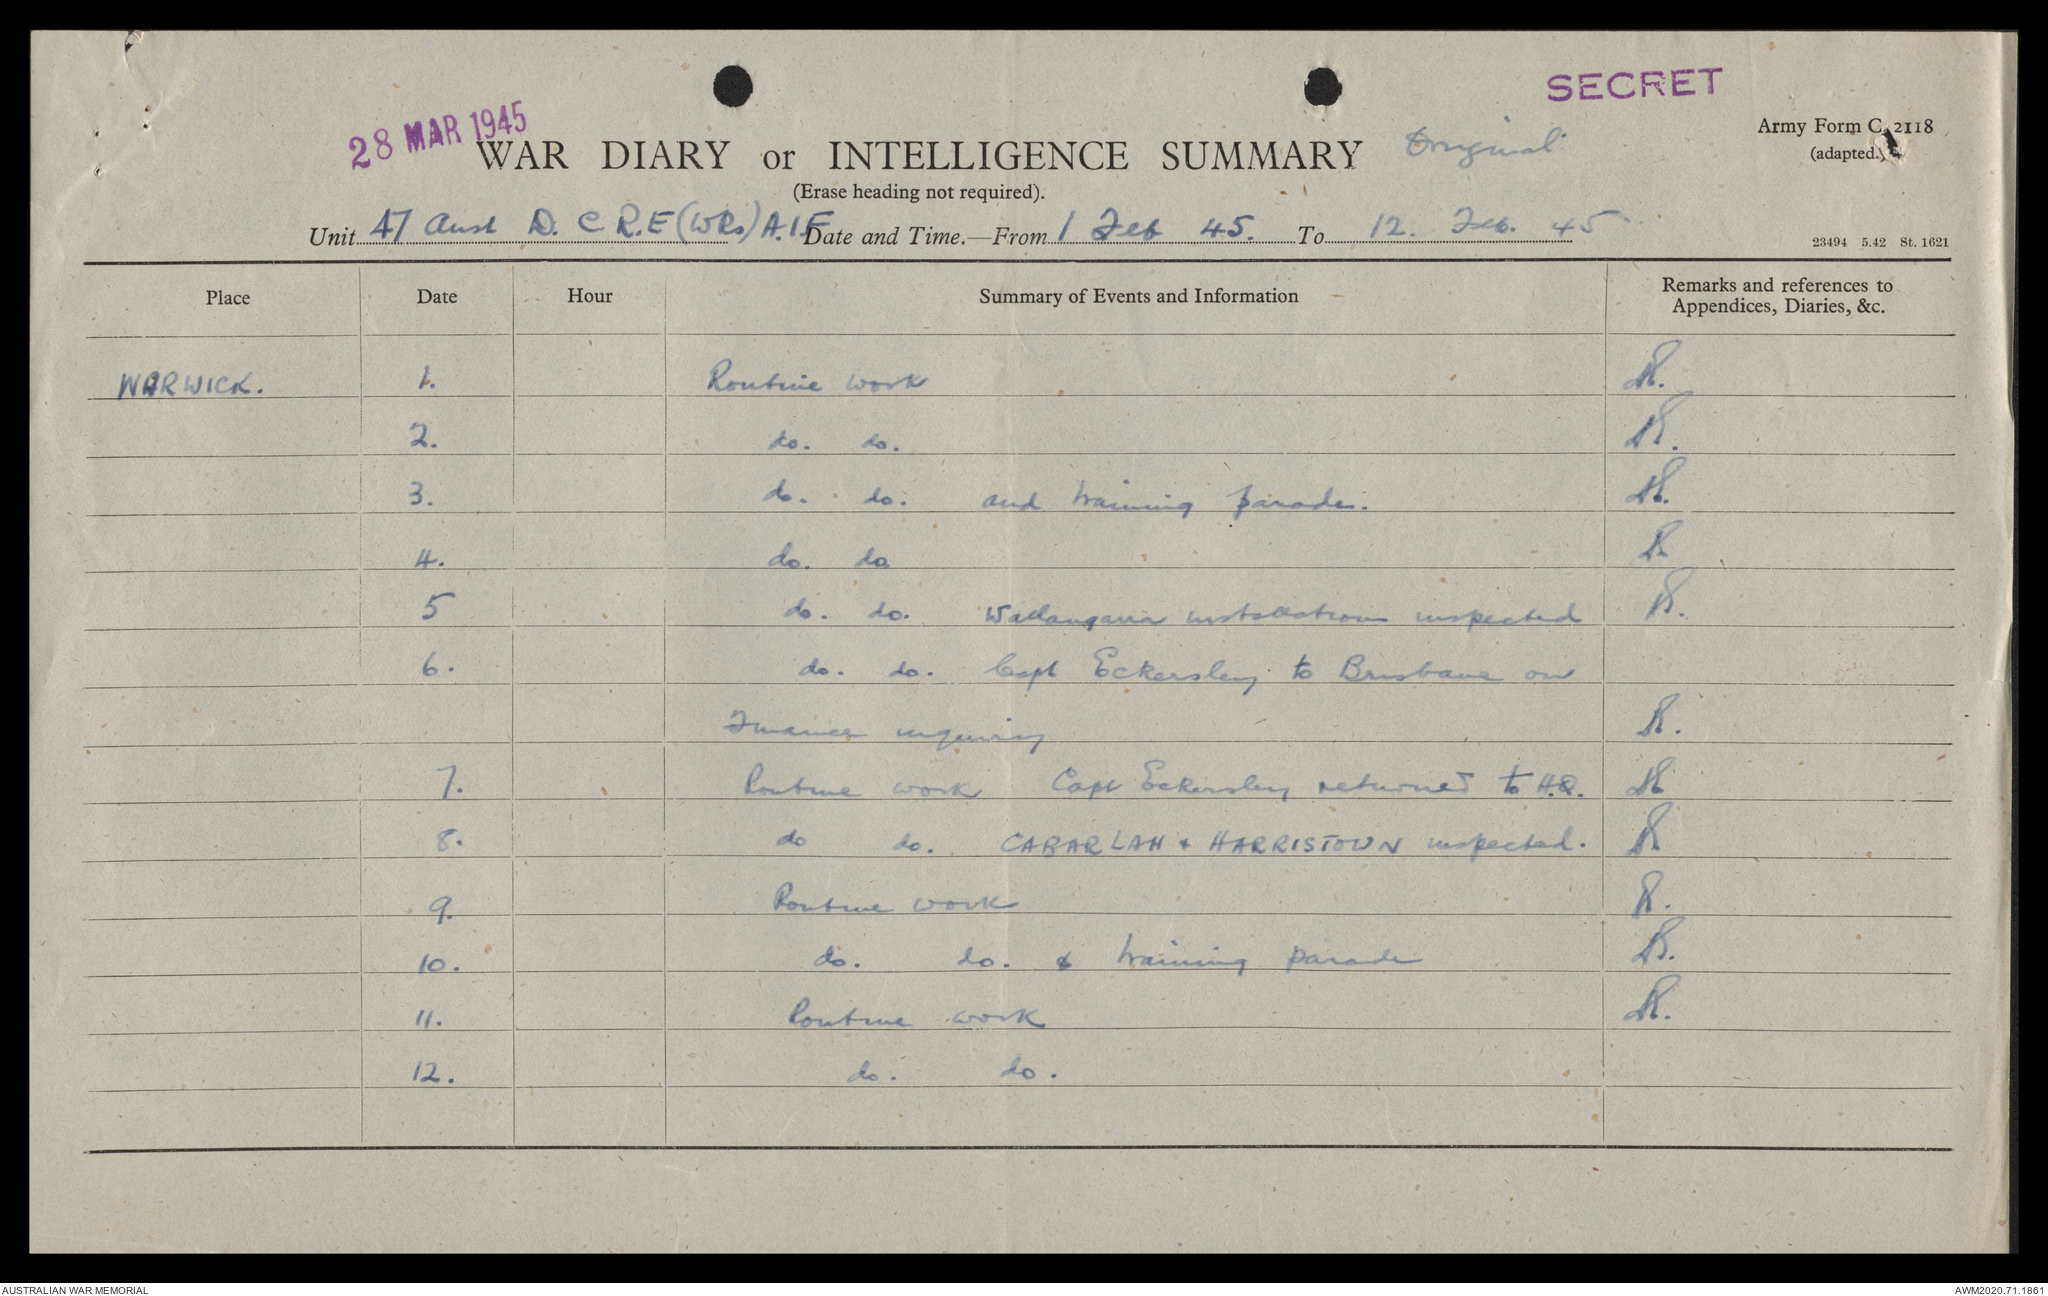 SECRET
28 MAR 1945
WAR DIARY or INTELLIGENCE SUMMARY Original
Army Form C. 2118
(adapted.)
(Erase heading not required).
Unit 47 Aust D. C R.E (WKs) A.I.F Date and Time.—From 1 Feb 45. To 12. Feb. 45
23494 5.42 St. 1621
Place Date Hour Summary of Events and Information Remarks and references to
Appendices, Diaries, &c.
WARWICK. 1. Routine work
2. do. do.
3. do. do. and training parade.
4. do. do
5 do. do. Wallangarra installations inspected
6. do. do. Capt Eckersley to Brisbane on
Finance inquiry
7. Routine work Capt Eckersley returned to H.Q.
8. do do. CABARLAH & HARRISTOWN inspected.
9. Routine work
10. do. do. & training parade
11. Routine work
12. do. do.
AUSTRALIAN WAR MEMORIAL
AWM2020.71.1861